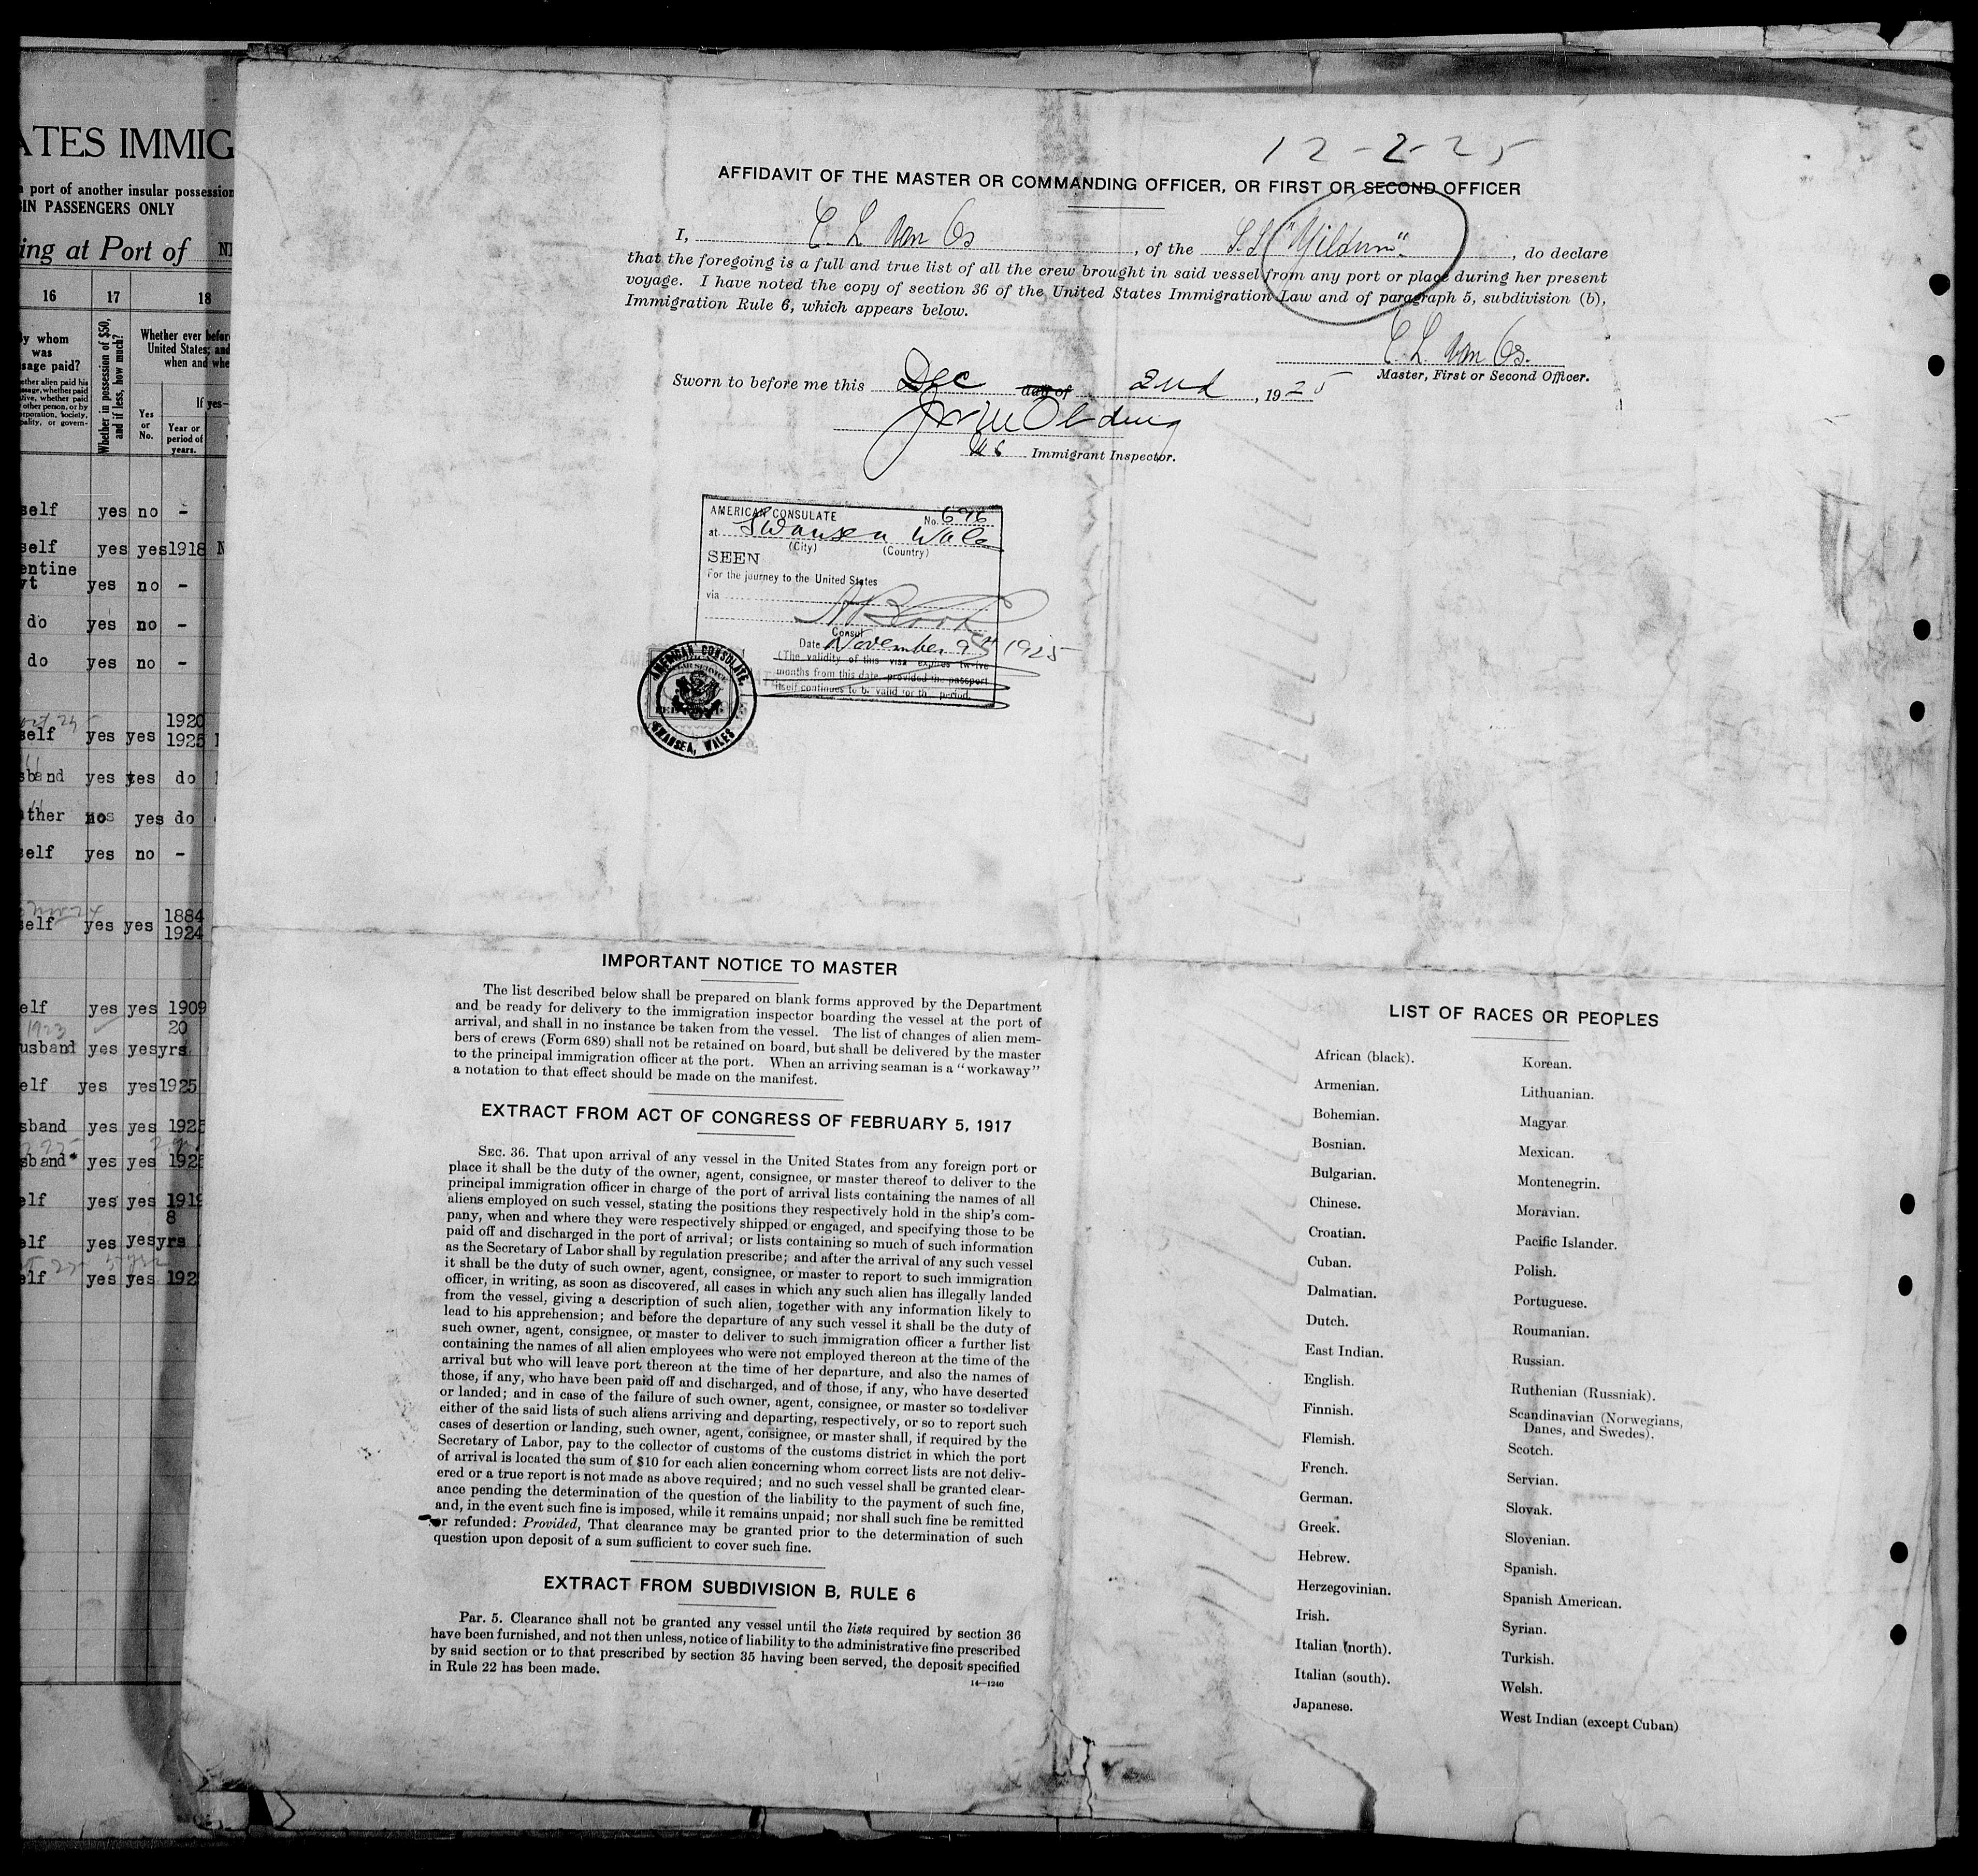 ATES IMMIG
a port of another insular possession
IN PASSENGERS ONLY
ing at Port of
16 17 18
By whom
was
sage paid?
Whether in possession of $50,
and if less, how much?
Whether ever before
United States; and
when and whe
Yes
or
No.
If yes—
Year or
period of
years.
self yes no -
self yes yes 1918 N
entine
vt yes no -
do yes no -
do yes no -
1920
self yes yes 1925
sband yes yes do
ather yes do
self yes no -
1884
self yes yes 1924
elf yes yes 1909
1923 20
usband yes yes yrs
elf yes yes 1925
sband yes yes 1925
sband yes yes 1925
elf yes yes 1919
8
elf yes yes yrs
elf yes yes 192
12-2-25
AFFIDAVIT OF THE MASTER OR COMMANDING OFFICER, OR FIRST OR SECOND OFFICER
I, C. L. van Os, of the S.S. "Yildum", do declare
that the foregoing is a full and true list of all the crew brought in said vessel from any port or place during her present
voyage. I have noted the copy of section 36 of the United States Immigration Law and of paragraph 5, subdivision (b),
Immigration Rule 6, which appears below.
C. L. van Os.
Master, First or Second Officer.
Sworn to before me this Dec day of 2nd, 1925
Immigrant Inspector.
AMERICAN CONSULATE No. 696
at Swansea Wales
(City) (Country)
SEEN
For the journey to the United States
via
Consul
Date November 9th 1925
(The validity of this visa expires twelve
months from this date provided the passport
itself continues to be valid for that period.
AMERICAN CONSULATE,
SWANSEA, WALES
IMPORTANT NOTICE TO MASTER
The list described below shall be prepared on blank forms approved by the Department
and be ready for delivery to the immigration inspector boarding the vessel at the port of
arrival, and shall in no instance be taken from the vessel. The list of changes of alien mem-
bers of crews (Form 689) shall not be retained on board, but shall be delivered by the master
to the principal immigration officer at the port. When an arriving seaman is a "workaway"
a notation to that effect should be made on the manifest.
EXTRACT FROM ACT OF CONGRESS OF FEBRUARY 5, 1917
SEC. 36. That upon arrival of any vessel in the United States from any foreign port or
place it shall be the duty of the owner, agent, consignee, or master thereof to deliver to the
principal immigration officer in charge of the port of arrival lists containing the names of all
aliens employed on such vessel, stating the positions they respectively hold in the ship's com-
pany, when and where they were respectively shipped or engaged, and specifying those to be
paid off and discharged in the port of arrival; or lists containing so much of such information
as the Secretary of Labor shall by regulation prescribe; and after the arrival of any such vessel
it shall be the duty of such owner, agent, consignee, or master to report to such immigration
officer, in writing, as soon as discovered, all cases in which any such alien has illegally landed
from the vessel, giving a description of such alien, together with any information likely to
lead to his apprehension; and before the departure of any such vessel it shall be the duty of
such owner, agent, consignee, or master to deliver to such immigration officer a further list
containing the names of all alien employees who were not employed thereon at the time of the
arrival but who will leave port thereon at the time of her departure, and also the names of
those, if any, who have been paid off and discharged, and of those, if any, who have deserted
or landed; and in case of the failure of such owner, agent, consignee, or master so to deliver
either of the said lists of such aliens arriving and departing, respectively, or so to report such
cases of desertion or landing, such owner, agent, consignee, or master shall, if required by the
Secretary of Labor, pay to the collector of customs of the customs district in which the port
of arrival is located the sum of $10 for each alien concerning whom correct lists are not deliv-
ered or a true report is not made as above required; and no such vessel shall be granted clear-
ance pending the determination of the question of the liability to the payment of such fine,
and, in the event such fine is imposed, while it remains unpaid; nor shall such fine be remitted
or refunded: Provided, That clearance may be granted prior to the determination of such
question upon deposit of a sum sufficient to cover such fine.
EXTRACT FROM SUBDIVISION B, RULE 6
Par. 5. Clearance shall not be granted any vessel until the lists required by section 36
have been furnished, and not then unless, notice of liability to the administrative fine prescribed
by said section or to that prescribed by section 35 having been served, the deposit specified
in Rule 22 has been made.
14—1240
LIST OF RACES OR PEOPLES
African (black).
Armenian.
Bohemian.
Bosnian.
Bulgarian.
Chinese.
Croatian.
Cuban.
Dalmatian.
Dutch.
East Indian.
English.
Finnish.
Flemish.
French.
German.
Greek.
Hebrew.
Herzegovinian.
Irish.
Italian (north).
Italian (south).
Japanese.
Korean.
Lithuanian.
Magyar.
Mexican.
Montenegrin.
Moravian.
Pacific Islander.
Polish.
Portuguese.
Roumanian.
Russian.
Ruthenian (Russniak).
Scandinavian (Norwegians,
Danes, and Swedes).
Scotch.
Servian.
Slovak.
Slovenian.
Spanish.
Spanish American.
Syrian.
Turkish.
Welsh.
West Indian (except Cuban)